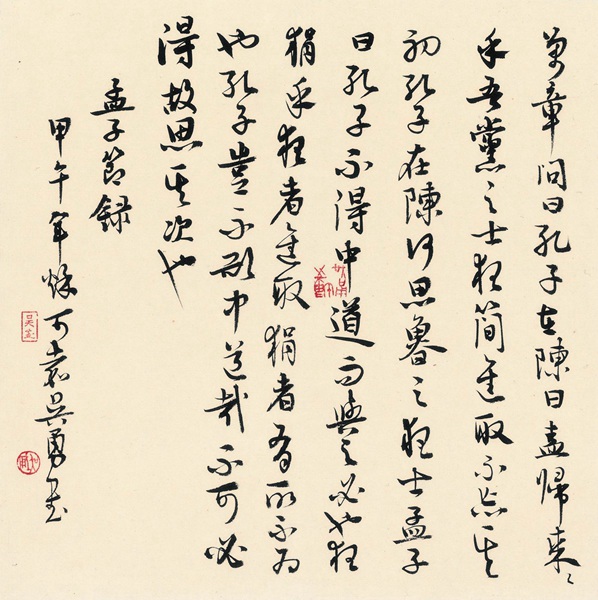 萬章問曰孔子在陳曰盍歸来
乎吾黨之士狂簡進取不忘其
初孔子在陳何思魯之狂士孟子
曰孔子不得中道而與之必也狂
狷乎狂者進取狷者有所不為
也孔子豈不欲中道哉不可必
得故思其次也
孟子節録
甲午年吳勇